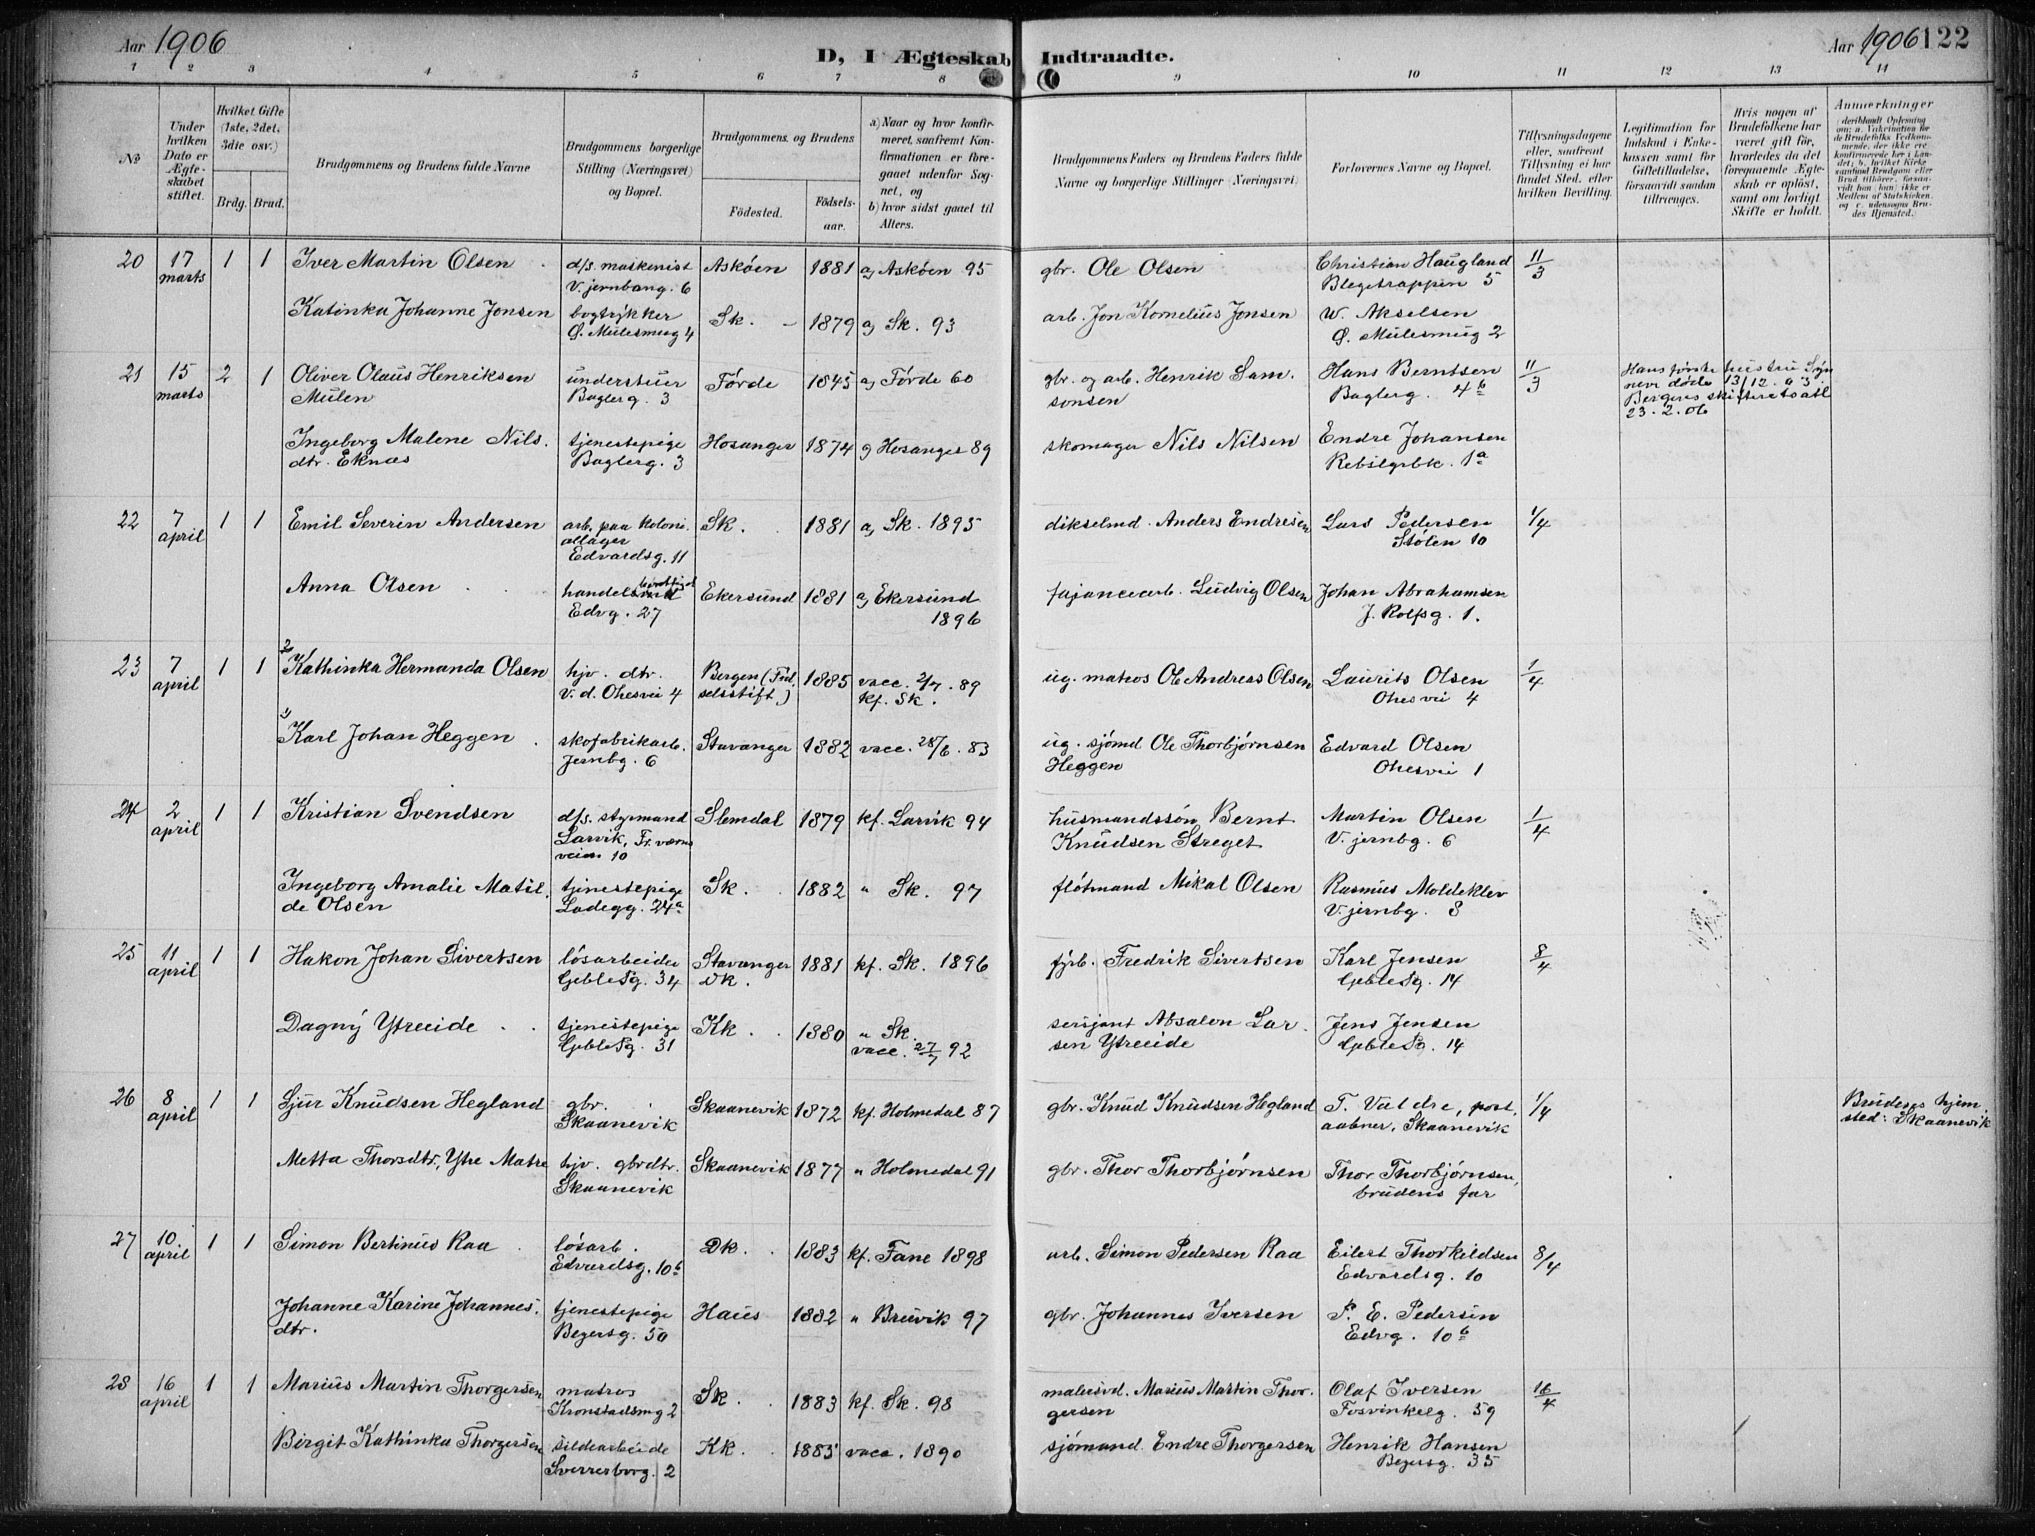 Aar 1906
D, I Ægteskab Indtraadte.
Aar 1906 122
1 2 3 4 5 6 7 8 9 10 11 12 13 14
No
Under hvilken Dato er Ægteskabet stiftet.
Hvilket Gifte (1ste, 2det, 3die osv.)
Brdg. Brud.
Brudgommens og Brudens fulde Navne
Brudgommens borgerlige Stilling (Næringsvei) og Bopæl.
Brudgommens og Brudens
Födested. Födselsaar.
a) Naar og hvor konfirmeret, saafremt Konfirmationen er foregaaet udenfor Sognet, og
b) hvor sidst gaaet til Alters.
Brudgommens Faders og Brudens Faders fulde Navne og borgerlige Stillinger (Næringsvei)
Forlovernes Navne og Bopæl.
Tillysningsdagene eller, saafremt Tillysning ei har fundet Sted, efter hvilken Bevilling.
Legitimation for Indskud i Enkekassen samt for Giftetilladelse, forsaavidt saadan tiltrænges.
Hvis nogen af Brudefolkene har været gift før, hvorledes da det foregaaende Ægteskab er oplöst, samt om lovligt Skifte er holdt.
Anmerkninger (deriblandt Oplysning om: a. Vakcination for de Brudefolks Vedkommende, der ikke ere konfirmerede her i Landet; b. hvilket Kirkesamfund Brudgom eller Brud tilhörer, forsaavidt han (hun) ikke er Medlem af Statskirken, og c. udensogns Brudes Hjemsted.)
20 17 marts 1 1 Iver Martin Olsen d/s. maskenist V. jernbang. 6 Askøen 1881 a) Askøen 95 gbr. Ole Olsen Christian Haugland Blegetrappen 5 11/3
Katinka Johanne Jonsen bogtrykker Ø. Mulesmug 4 Sk. 1879 a) Sk. 93 arb. Jon Kornelius Jonsen W. Akselsen Ø. Mulesmug 2
21 15 marts 2 1 Oliver Olaus Henriksen Mulen understuer Baglerg. 3 Førde 1845 a) Førde 60 gbr. og arb. Henrik Samsonsen Hans Berntsen Baglerg. 4b 11/3 Hans første hustru Synneve døde 13/12.03. Bergens skifteretsatt 23.2.06
Ingeborg Malene Nils. dtr. Eknæs tjenestepige Baglerg. 3 Hosanger 1874 a) Hosanger 89 skomager Nils Nilsen Endre Johansen Rebslgrbk. 1a
22 7 april 1 1 Emil Severin Andersen arb. paa koloniallager Edvardsg. 11 Sk. 1881 a) Sk. 1895 dikselmd. Anders Endresen Lars Pedersen Stølen 10 1/4
Anna Olsen handels Edvg. 27 Ekersund 1881 a) Ekersund 1896 fajancearb. Ludvig Olsen Johan Abrahamsen J. Rolfsg. 1.
23 7 april 1 1 2 Kathinka Hermanda Olsen hjv. dtr. V. d. Ohesvei 4 Bergen (Fødselsstift.) 1885 vacc. 2/7. 89 kf. Sk. ug. matros Ole Andreas Olsen Laurits Olsen Ohesvei 4 1/4
1 Karl Johan Heggen skofabrikarb. Jernbg. 6 Stavanger 1882 vacc. 28/6. 83 ug. sjømd Ole Thorbjørnsen Heggen Edvard Olsen Ohesvei 1
24 2 april 1 1 Kristian Svendsen d/s. styrmand Larvik, Fr. værnsveien 10 Slemdal 1879 kf. Larvik 94 husmandssøn Bernt Knudsen Streget Martin Olsen V. jernbg. 6 1/4
Ingeborg Amalie Matilde Olsen tjenestepige Ladegg. 24a Sk. 1882 " Sk. 97 fløtmand Mikal Olsen Rasmus Moldeklev V. jernbg. 8
25 11 april 1 1 Hakon Johan Sivertsen løsarbeider Gjeblesg. 34 Stavanger Dk. 1881 kf. Sk. 1896 fyrb. Fredrik Sivertsen Karl Jensen Gjeblesg. 14 8/4
Dagny Ytreeide tjenestepige Gjeblesg. 31 Kk. 1880 " Sk. vacc. 27/7 92 sersjant Absalon Larsen Ytreeide Jens Jensen Gjeblesg. 14
26 8 april 1 1 Sjur Knudsen Hegland gbr. Skaanevik Skaanevik 1872 kf. Holmedal 87 gbr. Knud Knudsen Hegland T. Valdre, postaabner, Skaanevik 1/4 Brudens hjemsted: Skaanevik
Metta Thorsdtr. Ytre Matre hjv. gbrdtr. Skaanevik Skaanevik 1877 " Holmedal 91 gbr. Thor Thorbjørnsen Thor Thorbjørnsen, brudens far
27 10. april 1 1 Simon Bertinus Raa løsarb. Edvardsg. 10b Dk. 1883 kf. Fane 1898 arb. Simon Pedersen Raa Eilert Thorkildsen Edvardsg. 10 8/4
Johanne Karine Johannes. dtr. tjenestepige Begersg. 50 Haus 1882 " Bruvik 97 gbr. Johannes Iversen P. E. Pedersen Edvg. 10b
28 16 april 1 1 Marius Martin Thorgersen matros Kronstadsmg 2 Sk. 1883 kf. Sk. 98 malersvd. Marius Martin Thorgersen Olaf Iversen Fosvinkelg. 59 16/4
Birgit Kathinka Thorgersen sildearbeide Sverresborg. 2 Kk. 1885 vacc. 1890 sjømand Endre Thorgersen Henrik Hansen Begersg. 35